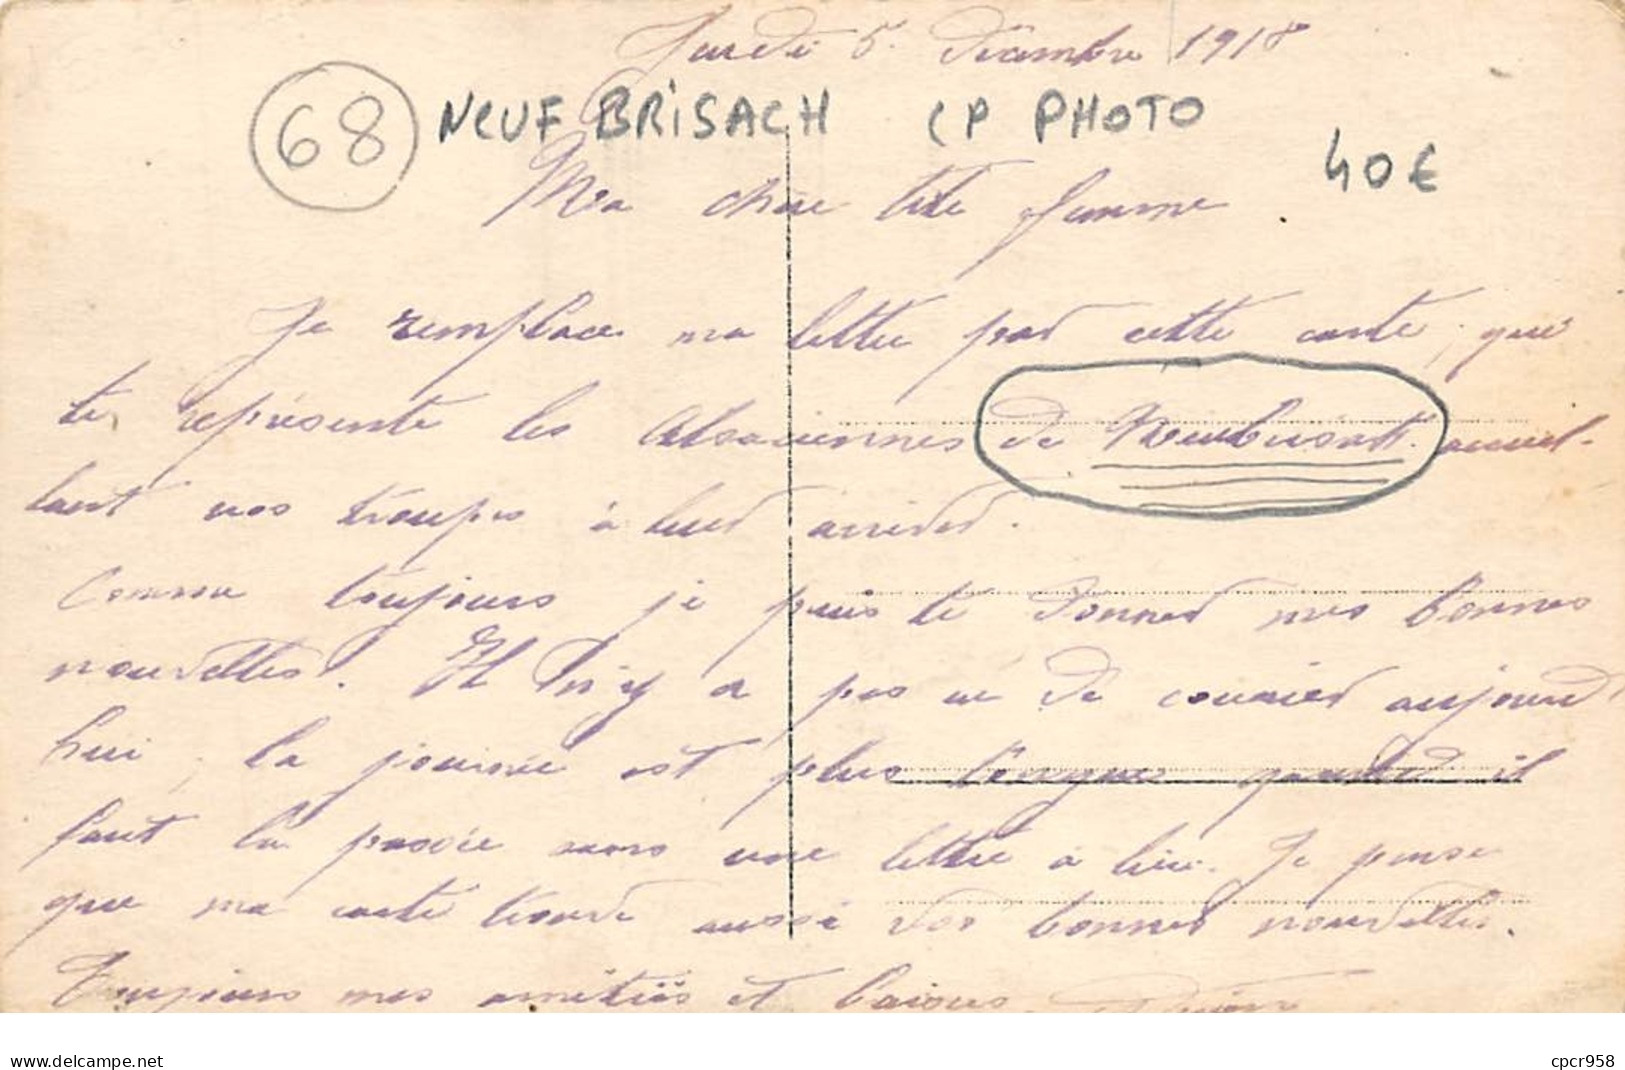 Jeudi 5 Décembre 1918
68 NEUF BRISACH CP PHOTO
40€
Ma chère tite femme
Je remplace ma lettre par cette carte, qui
te représente les Alsaciennes de Neubrisach accueil-
lant nos troupes à leur arrivée.
Comme toujours je puis te donner mes bonnes
nouvelles. Il n'y a pas eu de courrier aujourd
hui, la journée est plus longues quand il
faut la passée sans une lettre à lire. Je pense
que ma carte trouve aussi vos bonnes nouvelles.
Toujours mes amitiés et baisers
cpcr958